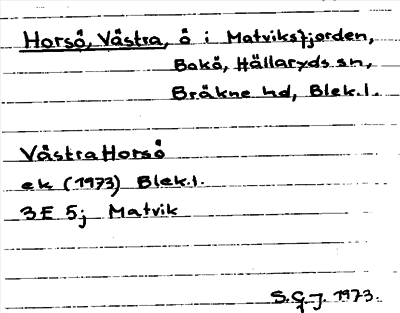 Horsö, Västra, ö i Matviksfjorden,
Bokö, Hällaryds sn,
Bräkne hd, Blek.l.
Västra Horsö
ek (1973) Blek.l.
3E 5j Matvik
S.G.J. 1973.